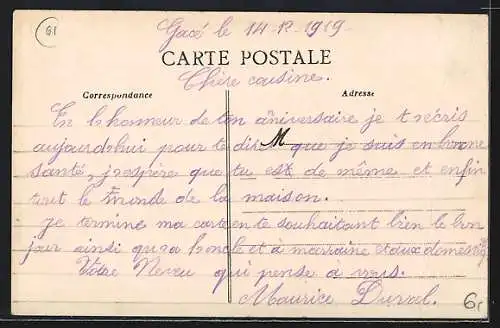 61
Gacé le 14-12-1919
CARTE POSTALE
Chère cousine.
Correspondance
Adresse
En l'honneur de ton anniversaire je t'écris
aujourd'hui pour te dire que je suis en bonne
santé, j'espère que tu est de même et enfin
tout le monde de la maison.
Je termine ma carte en te souhaitant bien le bon
jour ainsi qu'a l'oncle et à marraine et aux domestiq
Votre Neveu qui pense à vous.
Maurice Duval.
6€